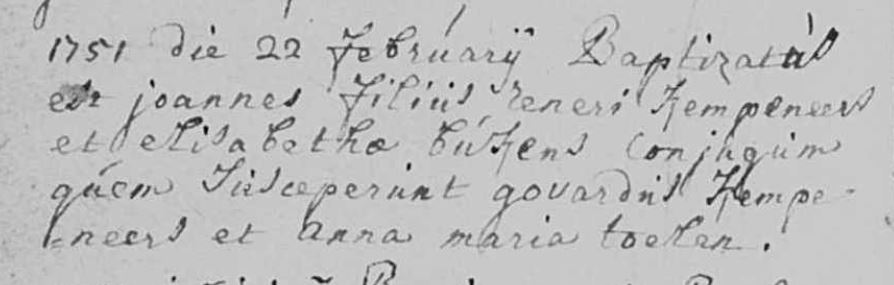 1751 die 22 februarÿ Baptizatus
est joannes filius reneri Kempeneers
et elisabethæ buKens Conjugum
quem Susceperunt govardus Kempe-
=neers et anna maria toelen.